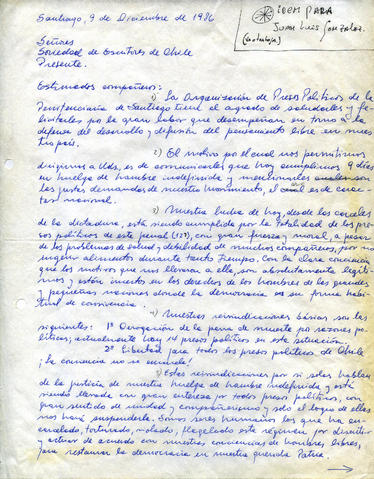 IDEM PARA
JUAN LUIS GONZALEZ.
Santiago, 9 de Diciembre de 1986
Señores
Sociedad de Escritores de Chile
Presente.
Estimados compañeros:
1) La Organización de Presos Políticos de la
Penitenciaria de Santiago tiene el agrado de saludarles y fe-
licitarles por la gran labor que desempeñan en torno a la
defensa del desarrollo y difusión del pensamiento libre en nues
tro país.
2) El motivo por el cual nos permitimos
dirigirnos a Uds, es de comunicarles que hoy cumplimos 9 días
en huelga de hambre indefinida y mencionarles cuales son
las justas demandas de nuestro movimiento, el cual es de carác-
ter nacional.
3) Nuestra lucha de hoy, desde las cárceles
de la dictadura, está siendo cumplida por la totalidad de los pre-
sos políticos de este penal, con gran fuerza y moral, a pesar
de los problemas de salud y debilidad de muchos compañeros, por no
ingerir alimentos durante tanto tiempo. Con la clara conciencia
que los motivos que nos llevaron a ella, son absolutamente legíti-
mos y están insertos en los derechos de los hombres de las grandes
y pequeñas naciones donde la democracia es su forma habi-
tual de convivencia.
4) Nuestras reivindicaciones básicas son las
siguientes: 1º Derogación de la pena de muerte por razones po-
líticas; actualmente hay 14 presos políticos en esta situación.
2º Libertad para todos los presos políticos de Chile
¡La conciencia no se encarcela!
5) Estas reivindicaciones por si solas hablan
de la justicia de nuestra huelga de hambre indefinida y está
siendo llevada con gran entereza por todos presos políticos, con
gran sentido de unidad y compañerismo y solo el logro de ellas
nos hará suspenderla. Somos seres humanos los que ha en-
carcelado, torturado, violado, flagelado este régimen por disentir
y actuar de acuerdo con nuestras conciencias de hombres libres,
para restaurar la democracia en nuestra querida Patria.